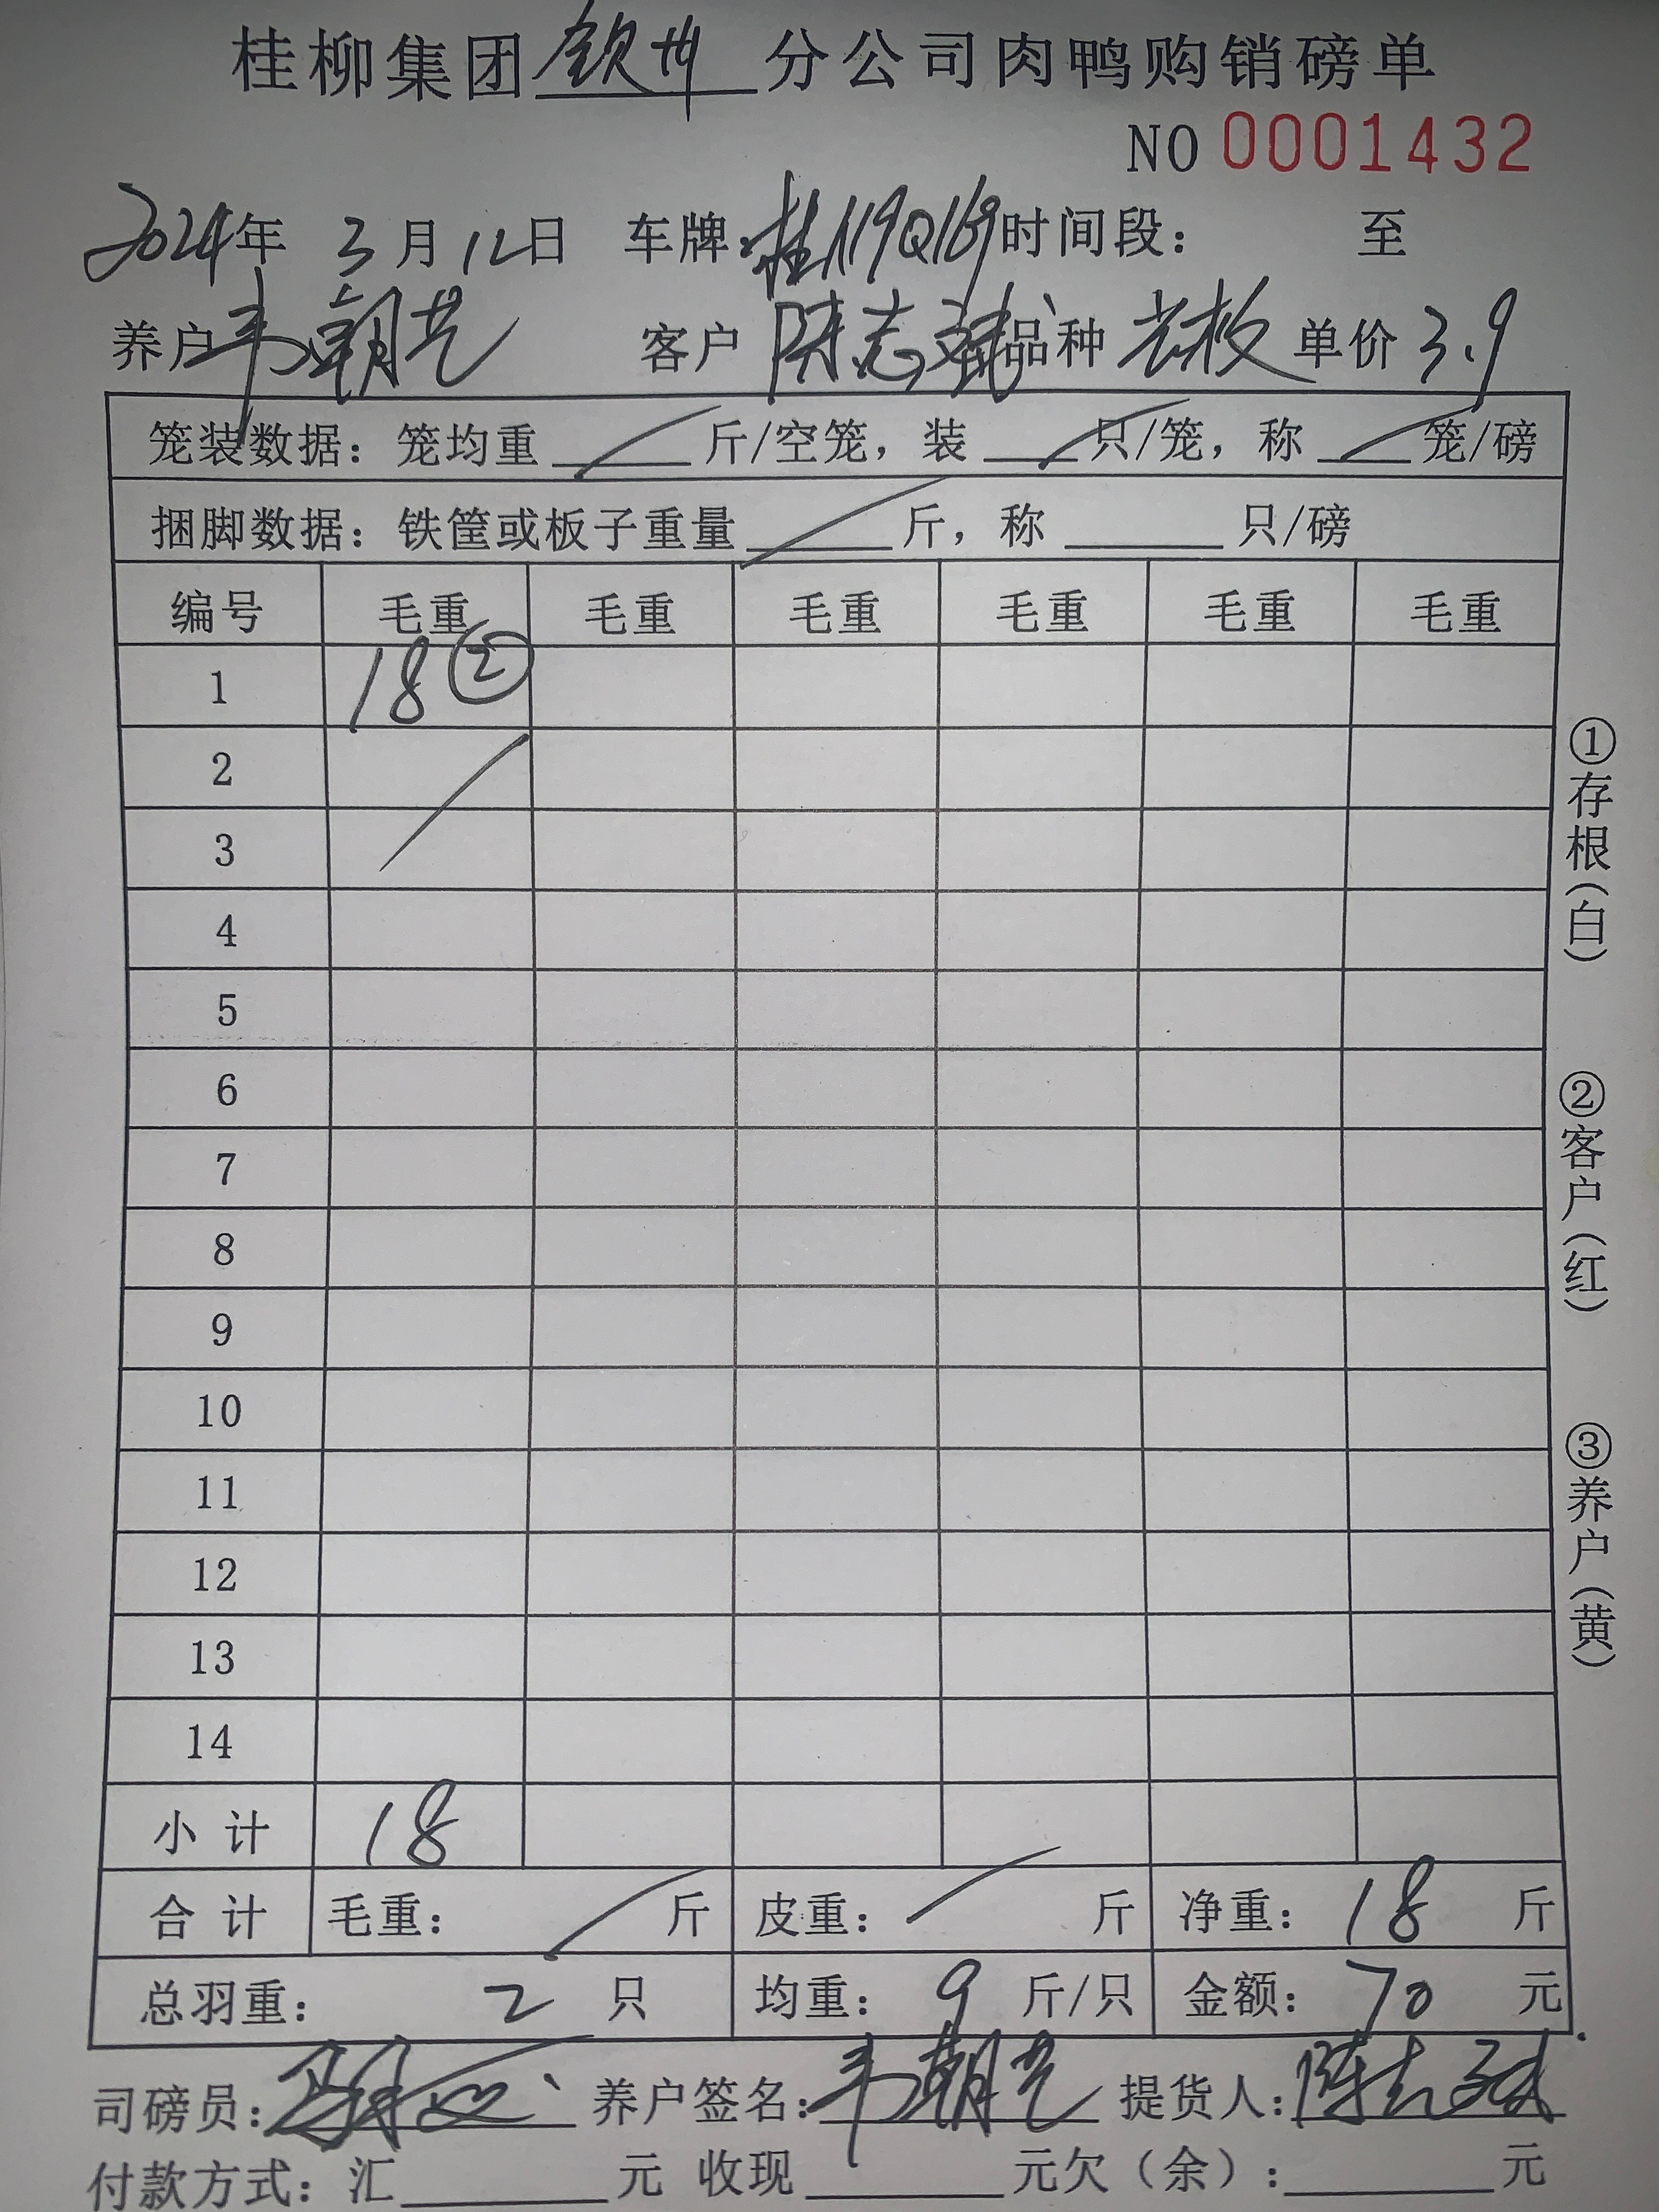 桂柳集团钦州分公司肉鸭购销磅单
NO 0001432
2024年 3月12日 车牌: 时间段: 至
养户韦朝艺 客户 陈志斌 品种 单价 3.9
笼装数据: 笼均重 斤/空笼, 装 只/笼, 称 笼/磅
捆脚数据: 铁筐或板子重量 斤, 称 只/磅
编号 毛重 毛重 毛重 毛重 毛重 毛重
1 18 ②
2
3
4
5
6
7
8
9
10
11
12
13
14
小计 18
合计 毛重: 斤 皮重: 斤 净重: 18 斤
总羽重: 2 只 均重: 9 斤/只 金额: 70 元
司磅员: 养户签名: 韦朝艺 提货人: 陈志斌
付款方式: 汇 元 收现 元欠(余): 元
①存根(白)
②客户(红)
③养户(黄)